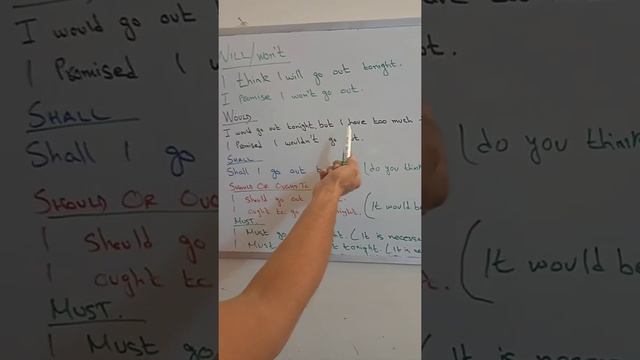 WILL/won't
I think I will go out tonight.
I promise I won't go out.
WOULD
I would go out tonight, but I have too much
I Promised I wouldn't go
SHALL
Shall I go out (do you think
SHOULD OR OUGHT TO
I should go out
I ought to go tonight. (It would be
MUST
I Must go (It is necess
I Must tonight. (It is ne